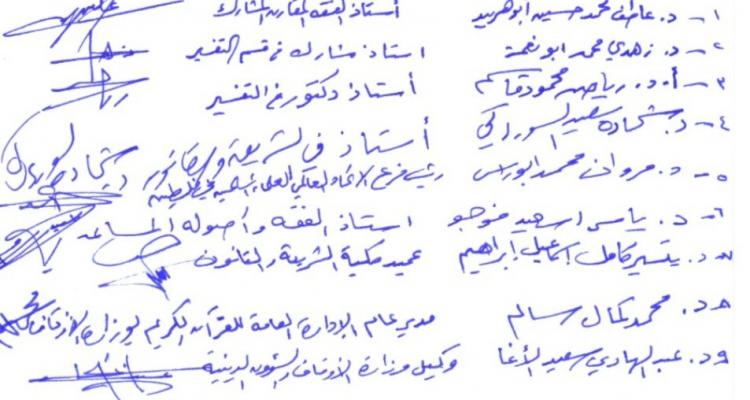 ١- د. عاطف محمد حسين أبو هربيد أستاذ الفقه المقارن المشارك
٢- د. زهدي محمد أبو نعمة استاذ مشارك في قسم التفسير
٣- أ.د. رياض محمود قاسم أستاذ دكتور في التفسير
٤- د. شحادة سعيد السويركي أستاذ في الشريعة
٥- د. مروان محمد أبوراس رئيس فرع الاتحاد العالمي
٦- د. ياسر اسعيد فوجو استاذ الفقه وأصوله المساعد
د. يتسير كامل إسماعيل إبراهيم عميد كلية الشريعة والقانون
٨- د. محمد كمال سالم مدير عام الإدارة العامة للقرآن الكريم بوزارة الأوقاف
٩- د. عبد الهادي سعيد الأغا وكيل وزارة الأوقاف والشؤون الدينية